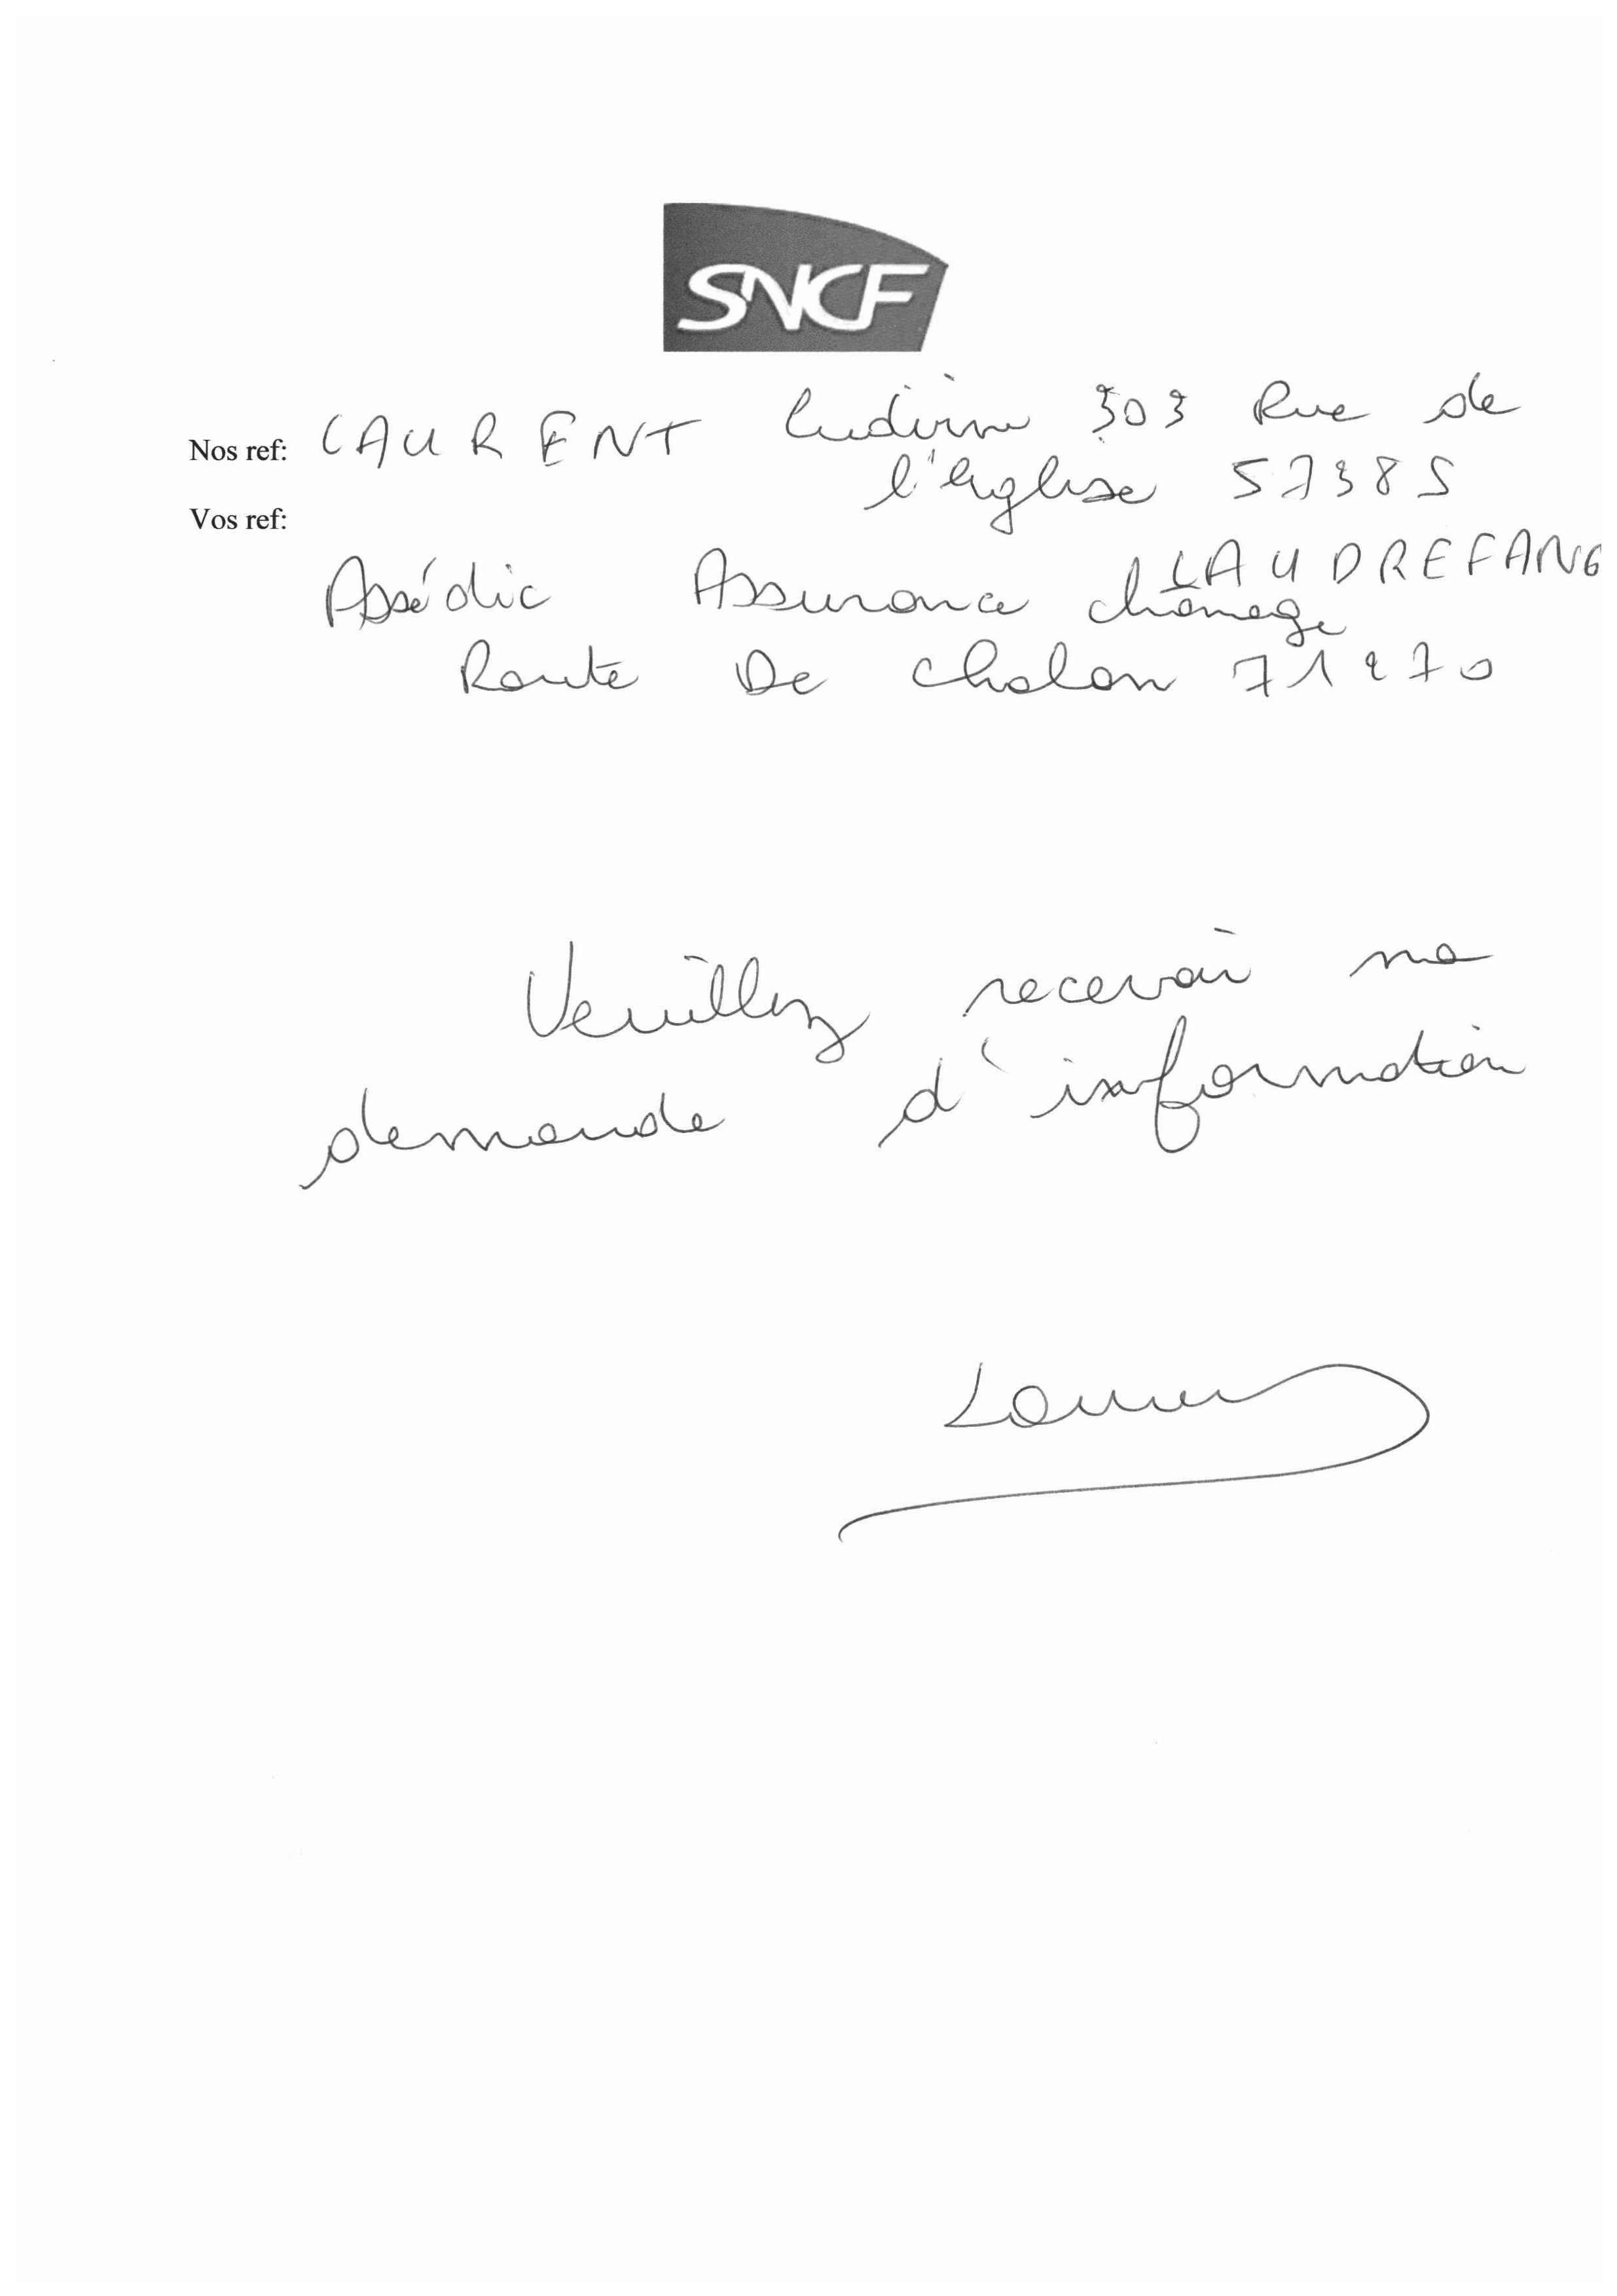 SNCF
Nos ref: LAURENT Ludivine 303 Rue de
l'église 57385
LAUDREFANG
Vos ref:
Assédic Assurance chômage
Route De Chalon 71270
Veuillez recevoir ma
demande d'information